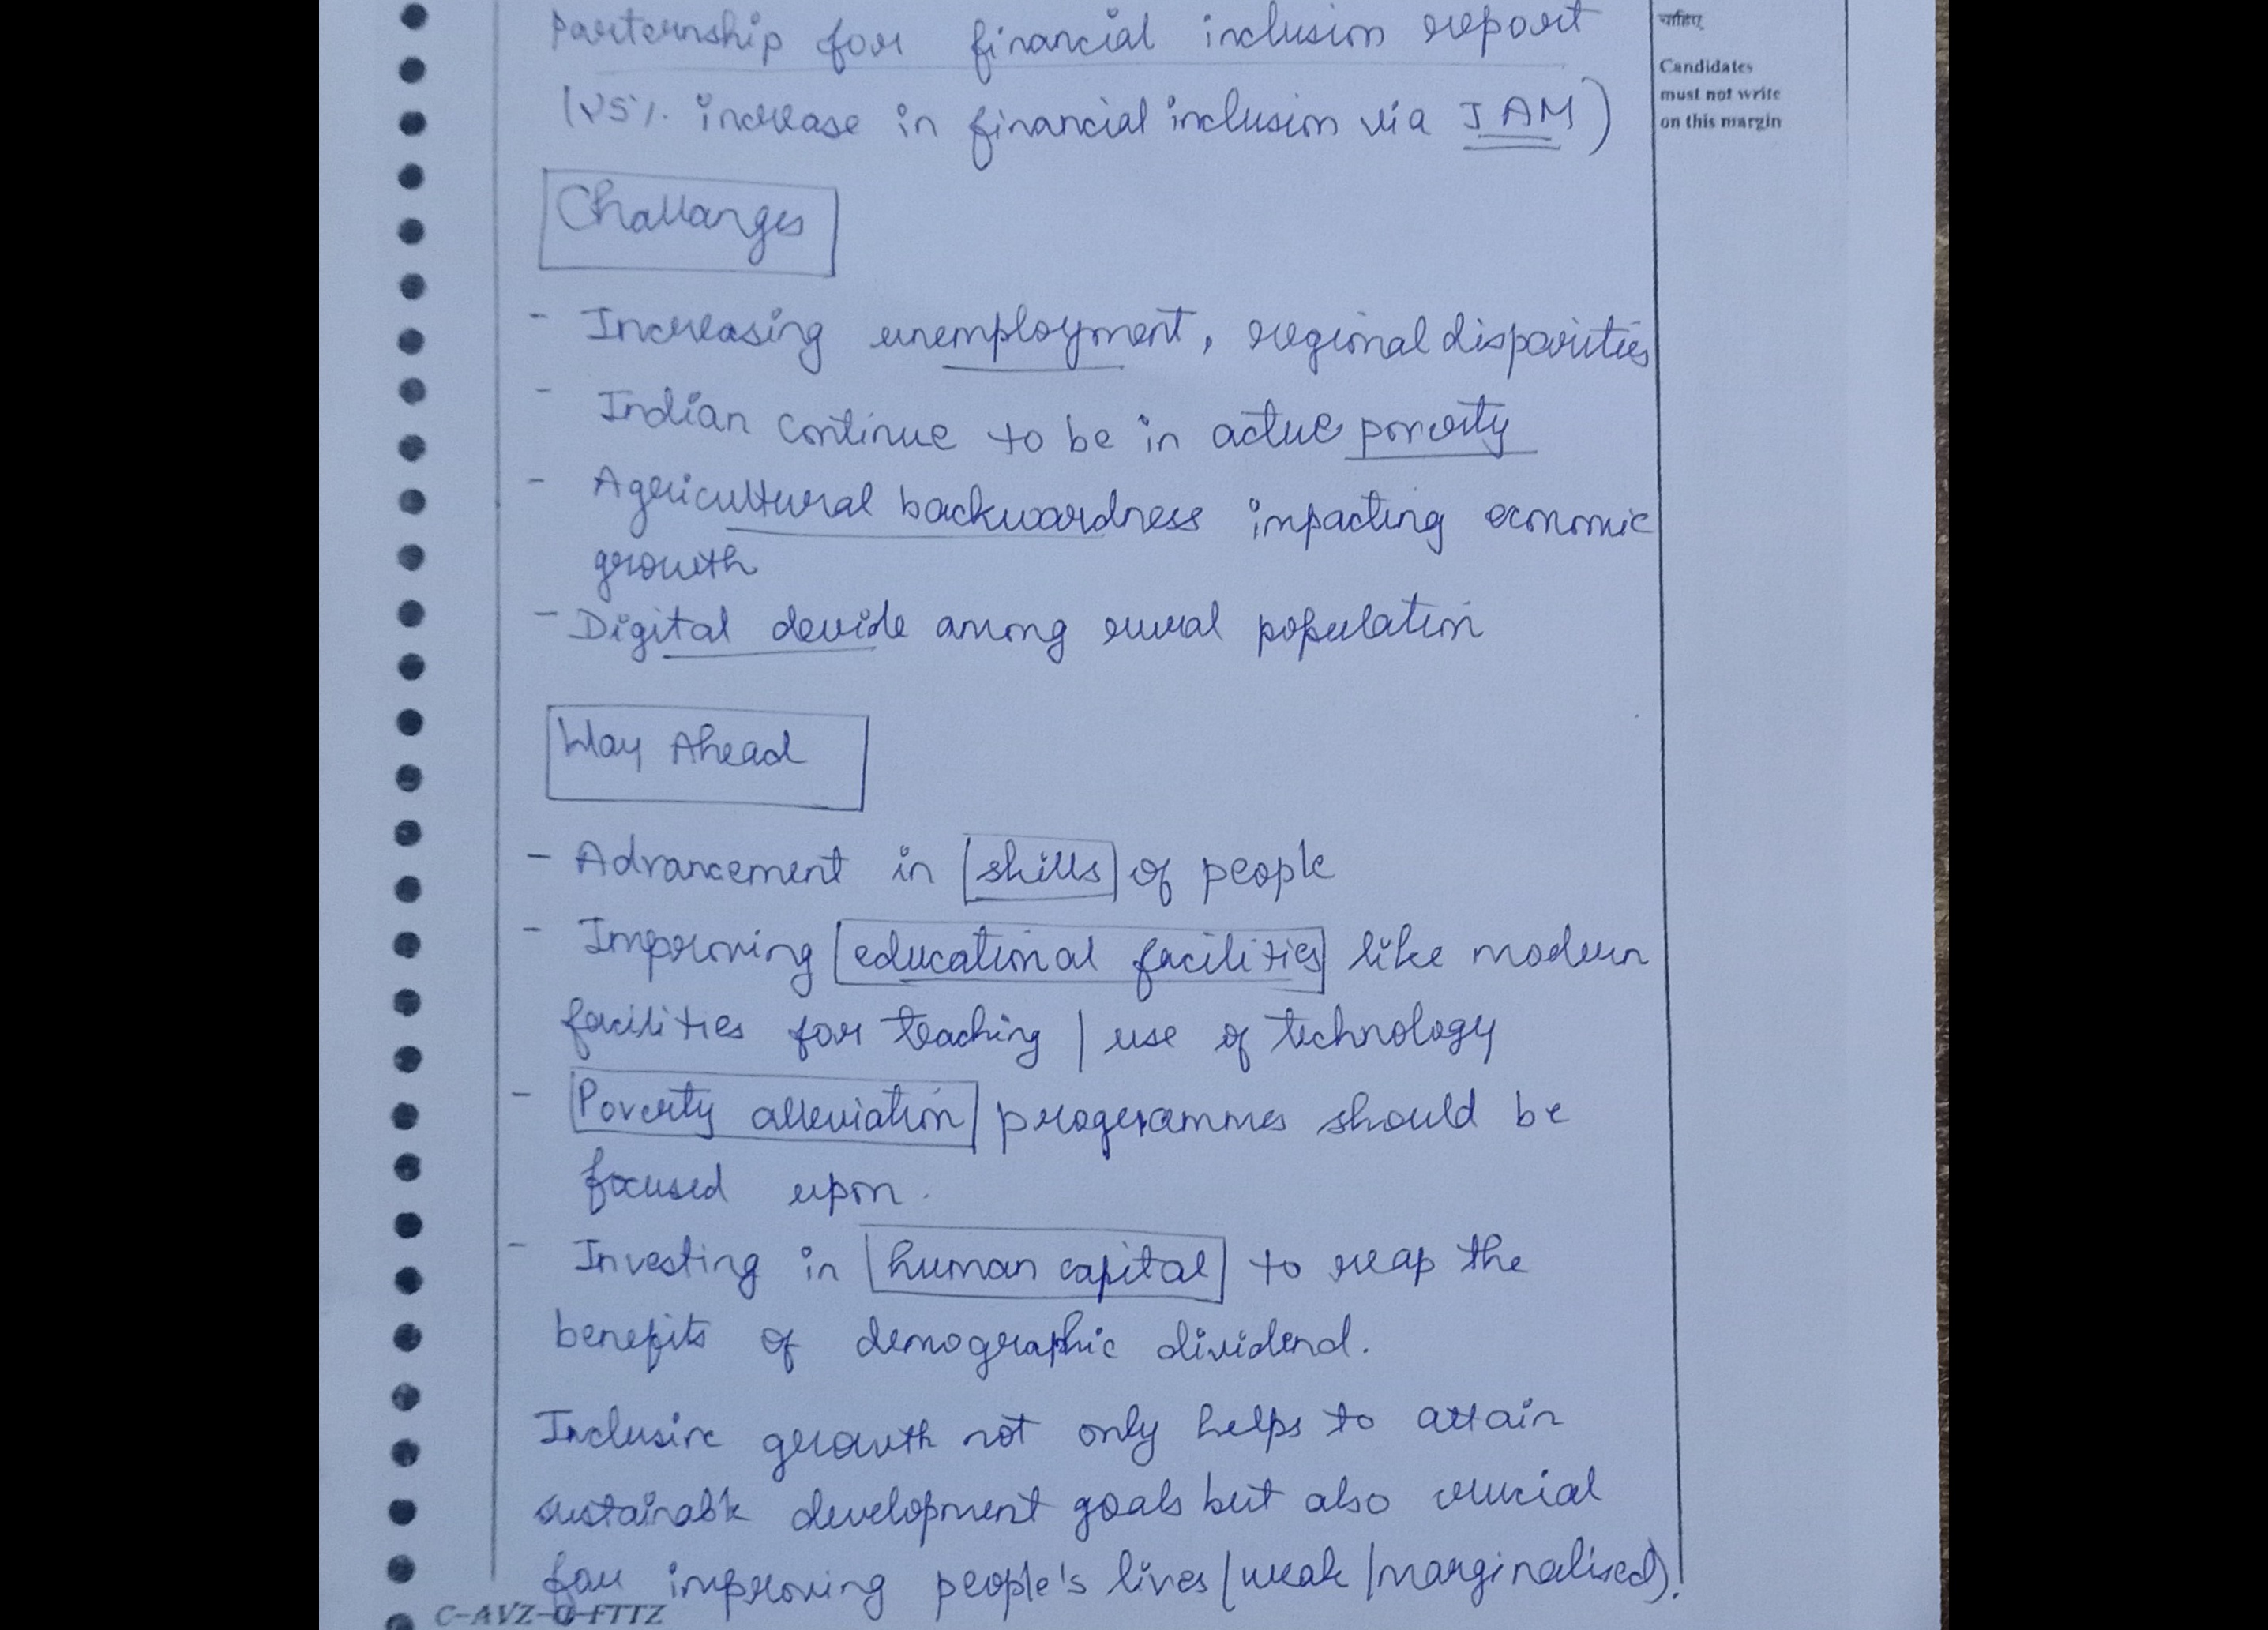 Parternship for financial inclusion report
चाहिए
Candidates
must not write
on this margin
increase in financial inclusion via JAM)
Challanges
- Increasing unemployment, regional disparities
- Indian continue to be in actue poverty
- Agricultural backwardness impacting economic
growth
- Digital devide among rural population
Way Ahead
- Advancement in skills of people
- Improving educational facilities like modern
facilities for teaching / use of technology
- Poverty alleviation programmes should be
focused upon.
- Investing in human capital to reap the
benefits of demographic dividend.
Inclusive growth not only helps to attain
sustainable development goals but also crucial
for improving people's lives (weak / marginalised).